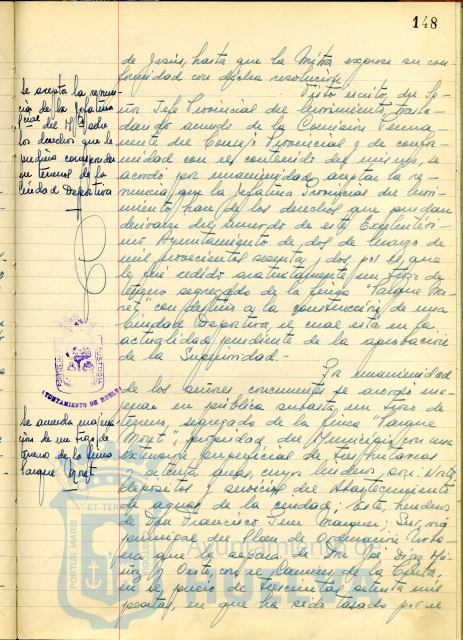 148
de Jesús, hasta que la Mitra exprese su con
formidad con dicha resolución.
Visto escrito del Se-
ñor Jefe Provincial del Movimiento trasla-
dando acuerdo de la Comisión Perma-
nente del Consejo Provincial y de confor-
midad con el contenido del mismo, se
acordó por unanimidad aceptar la re-
nuncia que la Jefatura Provincial del Movi-
miento, hace de los derechos que puedan
derivarse del acuerdo de este Excelentísi-
mo Ayuntamiento de dos de marzo de
mil novecientos sesenta y dos, por el que
le fue cedido gratuitamente un trozo de
terreno segregado de la finca "Parque Mo-
ret" con destino a la construcción de una
Ciudad Deportiva, el cual está en la
actualidad pendiente de la aprobación
de la Superioridad.-
Por unanimidad
de los señores concurrentes se acordó ena-
jenar en pública subasta, un trozo de
terreno, segregado de la finca "Parque
Moret", propiedad del Municipio, con una
extensión superficial de hectáreas
y setenta áreas, cuyos linderos son: Norte,
depósitos y servicios del Abastecimiento
de aguas de la ciudad; Este, herederos
de Don Francisco Jim Marquez; Sur, vía
principal del Plan de Ordenación Urba-
na que la separa de Don Diaz
y Oeste, con el Camino de la Cinta,
en el precio de trescientas setenta mil
pesetas, en que ha sido tasado por el
Se acepta la renun
cia de la Jefatura
Pcial del Mº sobre
los derechos que le
pudiera corresponder
en terrenos de la
Ciudad Deportiva
CUSTODIA
AYUNTAMIENTO DE HUELVA
Se acuerda enajena
ción de un trozo de
terreno de la finca
Parque Moret
PORTUS MARIS
ET TERRAE
CUSTODIA
Ayuntamiento de
HUELVA